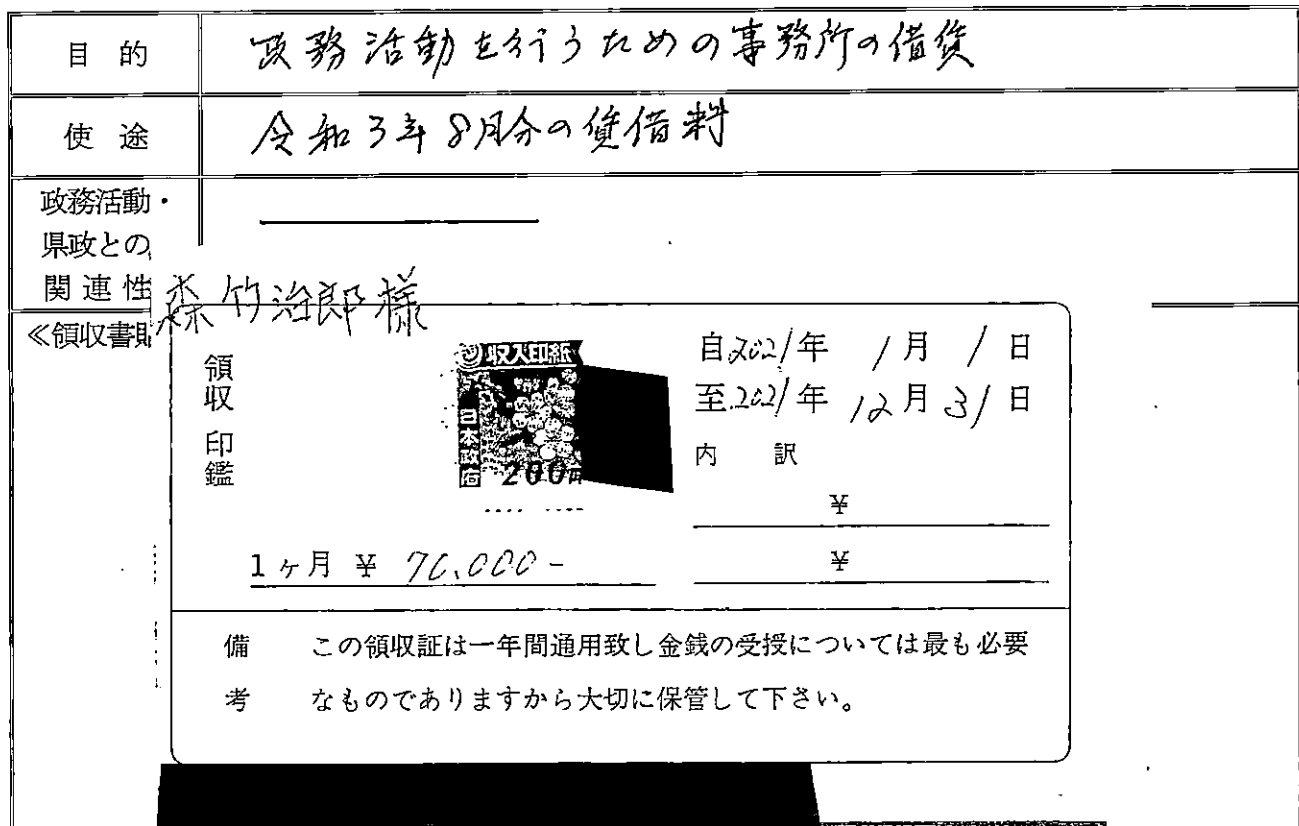 目的 政務活動を行うための事務所の借賃
使途 令和3年8月分の賃借料
政務活動・
県政との
関連性
森竹治郎様
≪領収書貼
領収印鑑
収入印紙
日本政府
200円
自2021年1月1日
至2021年12月31日
内訳
¥
1ヶ月 ¥ 70,000-
¥
備考
この領収証は一年間通用致し金銭の受授については最も必要
なものでありますから大切に保管して下さい。